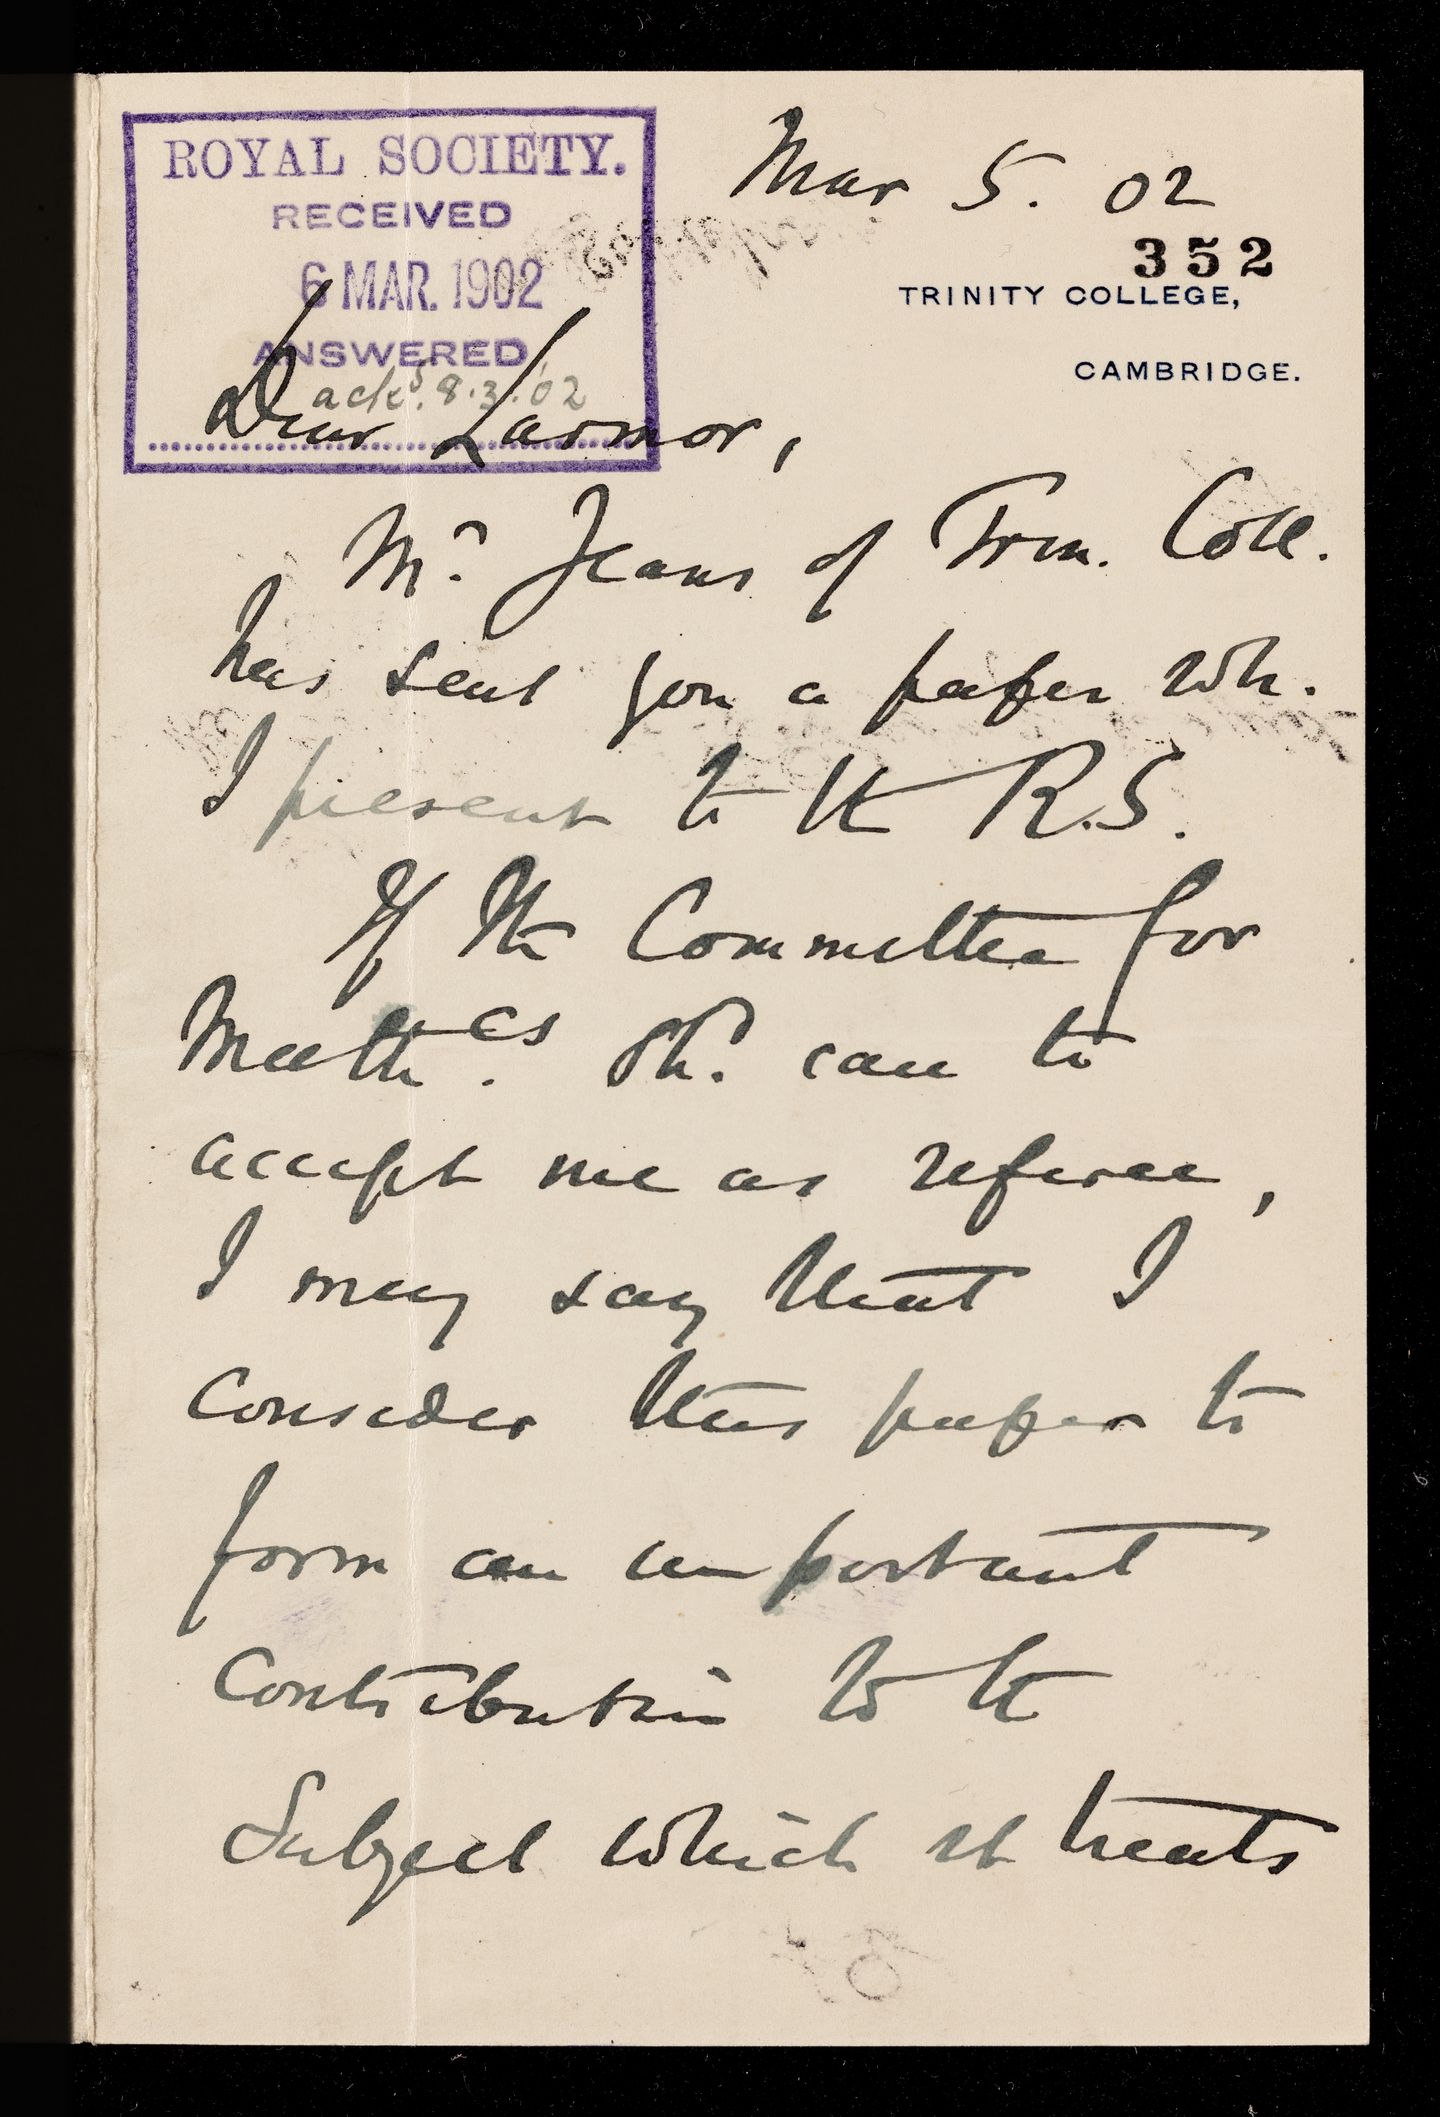 ROYAL SOCIETY.
RECEIVED
6 MAR. 1902
ANSWERED
ackd. 8.3.'02
Mar 5. 02
352
TRINITY COLLEGE,
CAMBRIDGE.
Dear Larmor,
Mr. Jeans of Trin. Coll.
has sent you a paper wh.
I present to the R.S.
If the Committee for
Math.cs Ph. care to
accept me as referee,
I may say that I
consider this paper to
form an important
contribution to the
subject which it treats